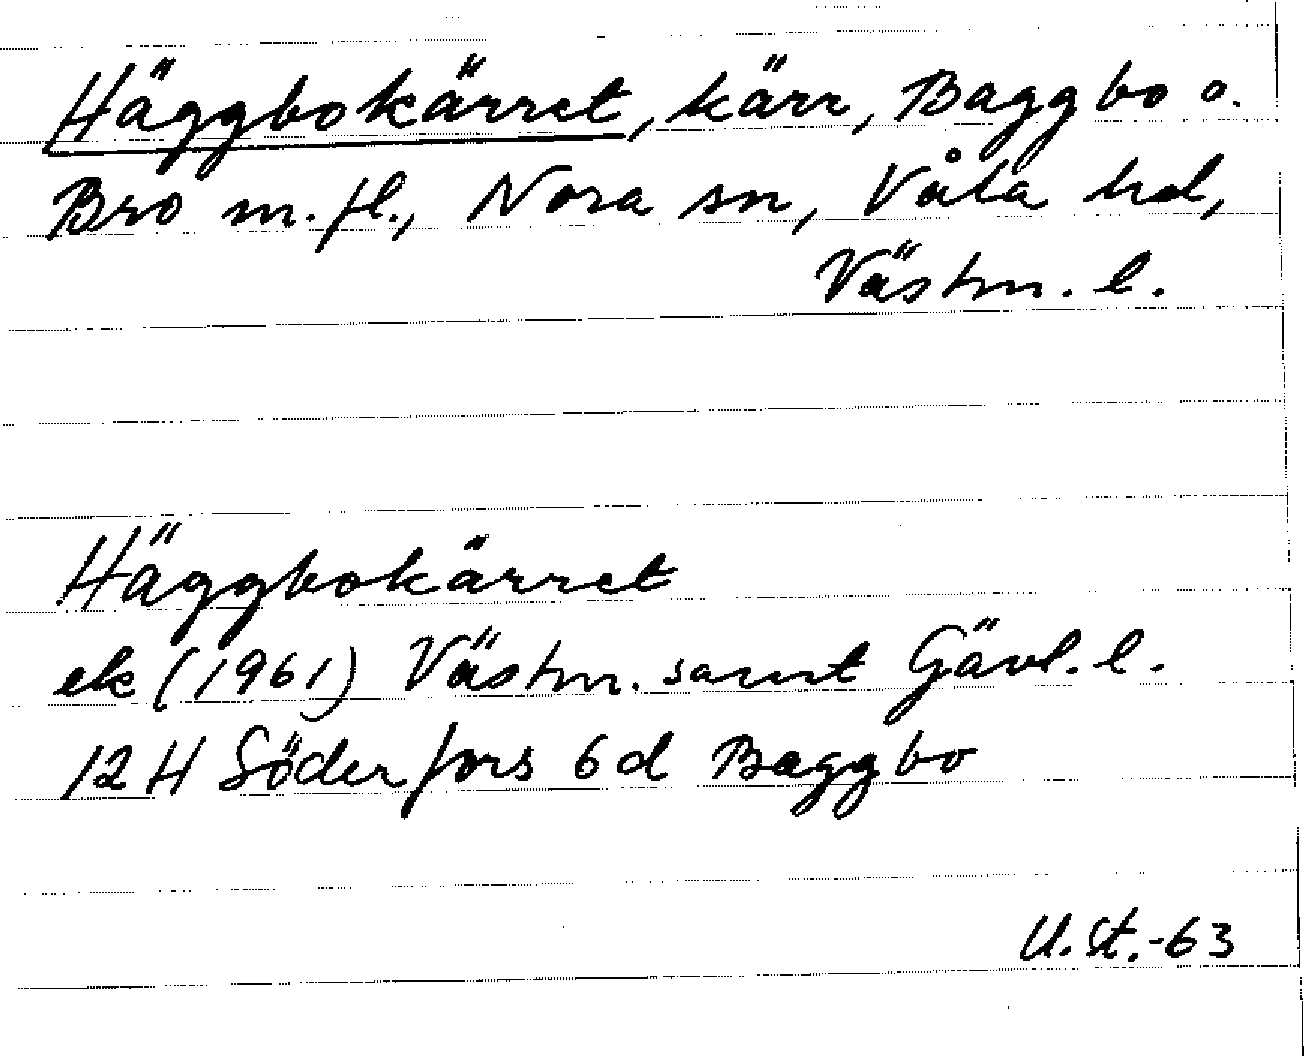 Häggbokärret, kärr, Baggbo o.
Bro m.fl., Nora sn, Våla hd,
Västm. l.
Häggbokärret
ek (1961) Västm. samt Gävl. l.
12H Söderfors 6d Baggbo
U.St.-63